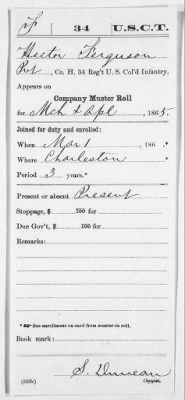 F 34 U.S.C.T.
Hector Ferguson
Pvt, Co. H, 34 Reg't U. S. Col'd Infantry.
Appears on
Company Muster Roll
for Mch & Apl, 1865.
Joined for duty and enrolled:
When Mar 1, 186 *
Where Charleston
Period 3 years.*
Present or absent Present
Stoppage, $ 100 for
Due Gov't, $ 100 for
Remarks:
* See enrollment on card from muster-in roll.
Book mark:
S. Duncan
(358) Copyist.